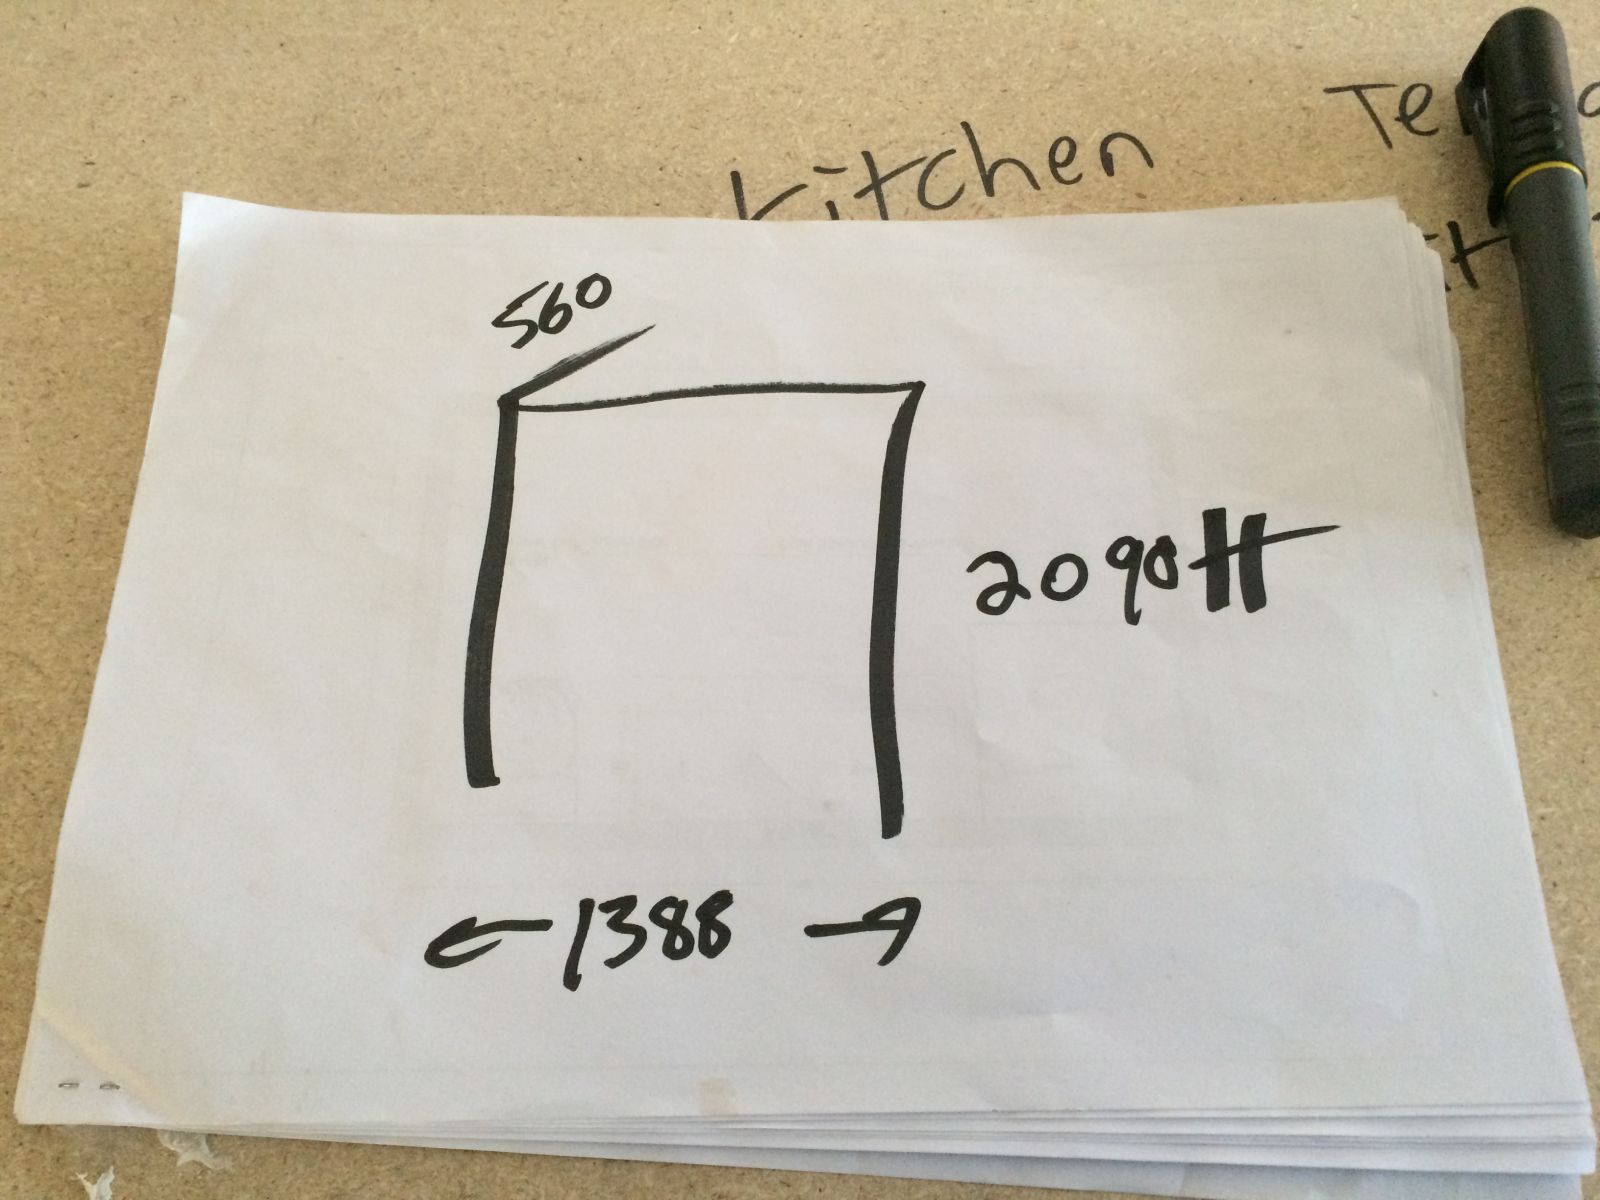 kitchen
560
2090H
1388